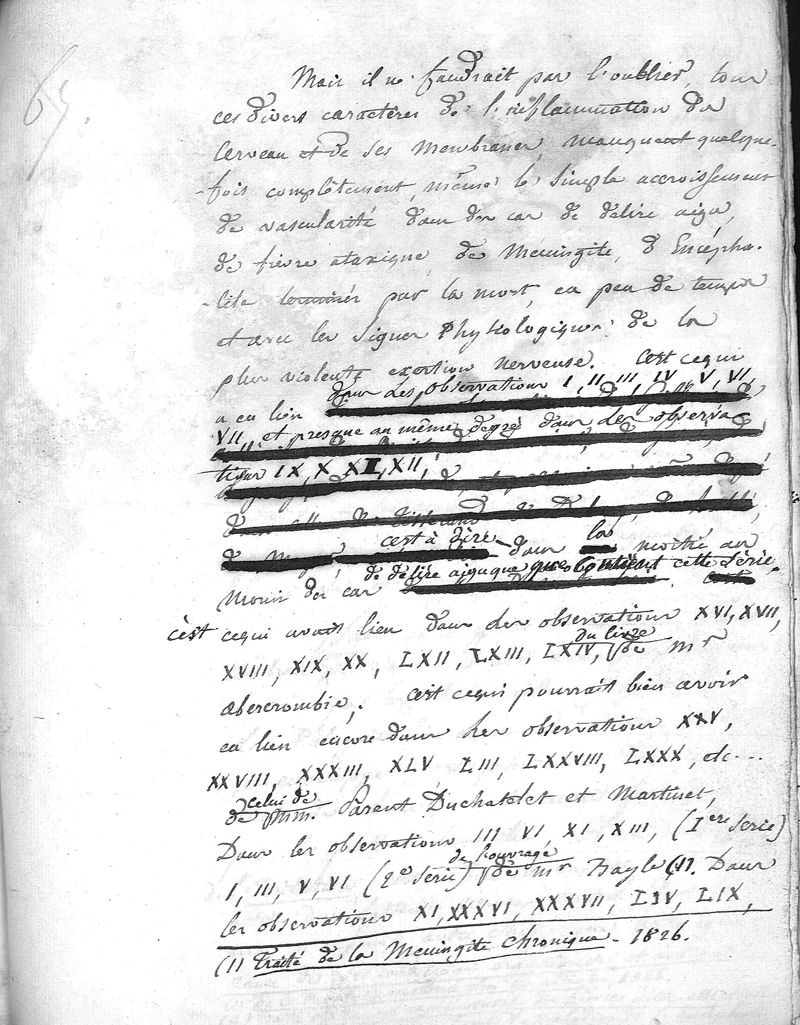 65.
Mais il ne faudrait pas l'oublier, tous
ces divers caractères de l'inflammation du
Cerveau et de ses Membranes, manquent quelque-
-fois complètement, même le simple accroissement
de vascularité dans des cas de délire aigu,
de fièvre ataxique, de Méningite, d'Encépha-
-lite terminés par la mort, en peu de temps
et avec les Signes Physiologiques de la
plus violente exertion nerveuse. C'est cequi
a eu lieu dans les observations I, II, III, IV, V, VI,
VII, et presque au même degré dans les observa
tions IX, X, XI, XII,
c'est à dire dans la moitié au
moins des cas de délire aigu que contient cette série.
c'est cequi avait lieu dans les observations XVI, XVII,
XVIII, XIX, XX, LXII, LXIII, LXIV, du livre de Mr
Abercrombie, c'est cequi pourrait bien avoir
eu lieu encore dans les observations XXV,
XXVIII, XXXIII, XLV LIII, LXXVIII, LXXX, etc...
de celui de MM. Parent Duchatelet et Martinet,
Dans les observations III VI, XI, XIII, (Iere serie)
I, III, V, VI (2e serie) de l'ouvrage de Mr Bayle (1). Dans
les observations XI, XXXVI, XXXVII, LIV, LIX,
(1) Traité de la Méningite chronique - 1826.